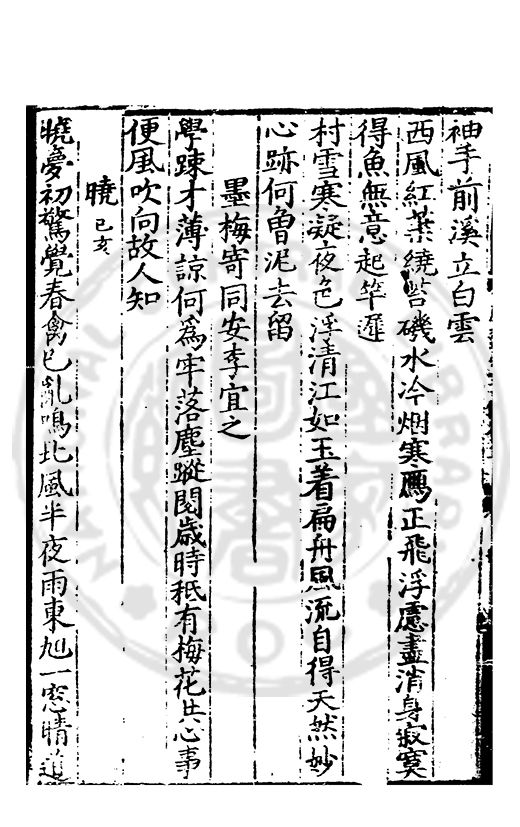 袖手前溪立白雲
西風紅葉繞苔磯水冷烟寒鴈正飛浮慮盡消身寂寞
得魚無意起竿遲
村雪寒凝夜色浮清江如玉着扁舟風流自得天然妙
心跡何曽泥去留
墨梅寄同安李宜之
學踈才薄諒何為牢落塵蹤閱歳時秪有梅花共心事
便風吹向故人知
曉 己亥
曉夢初驚覺春禽已亂鳴北風半夜雨東旭一窓晴道